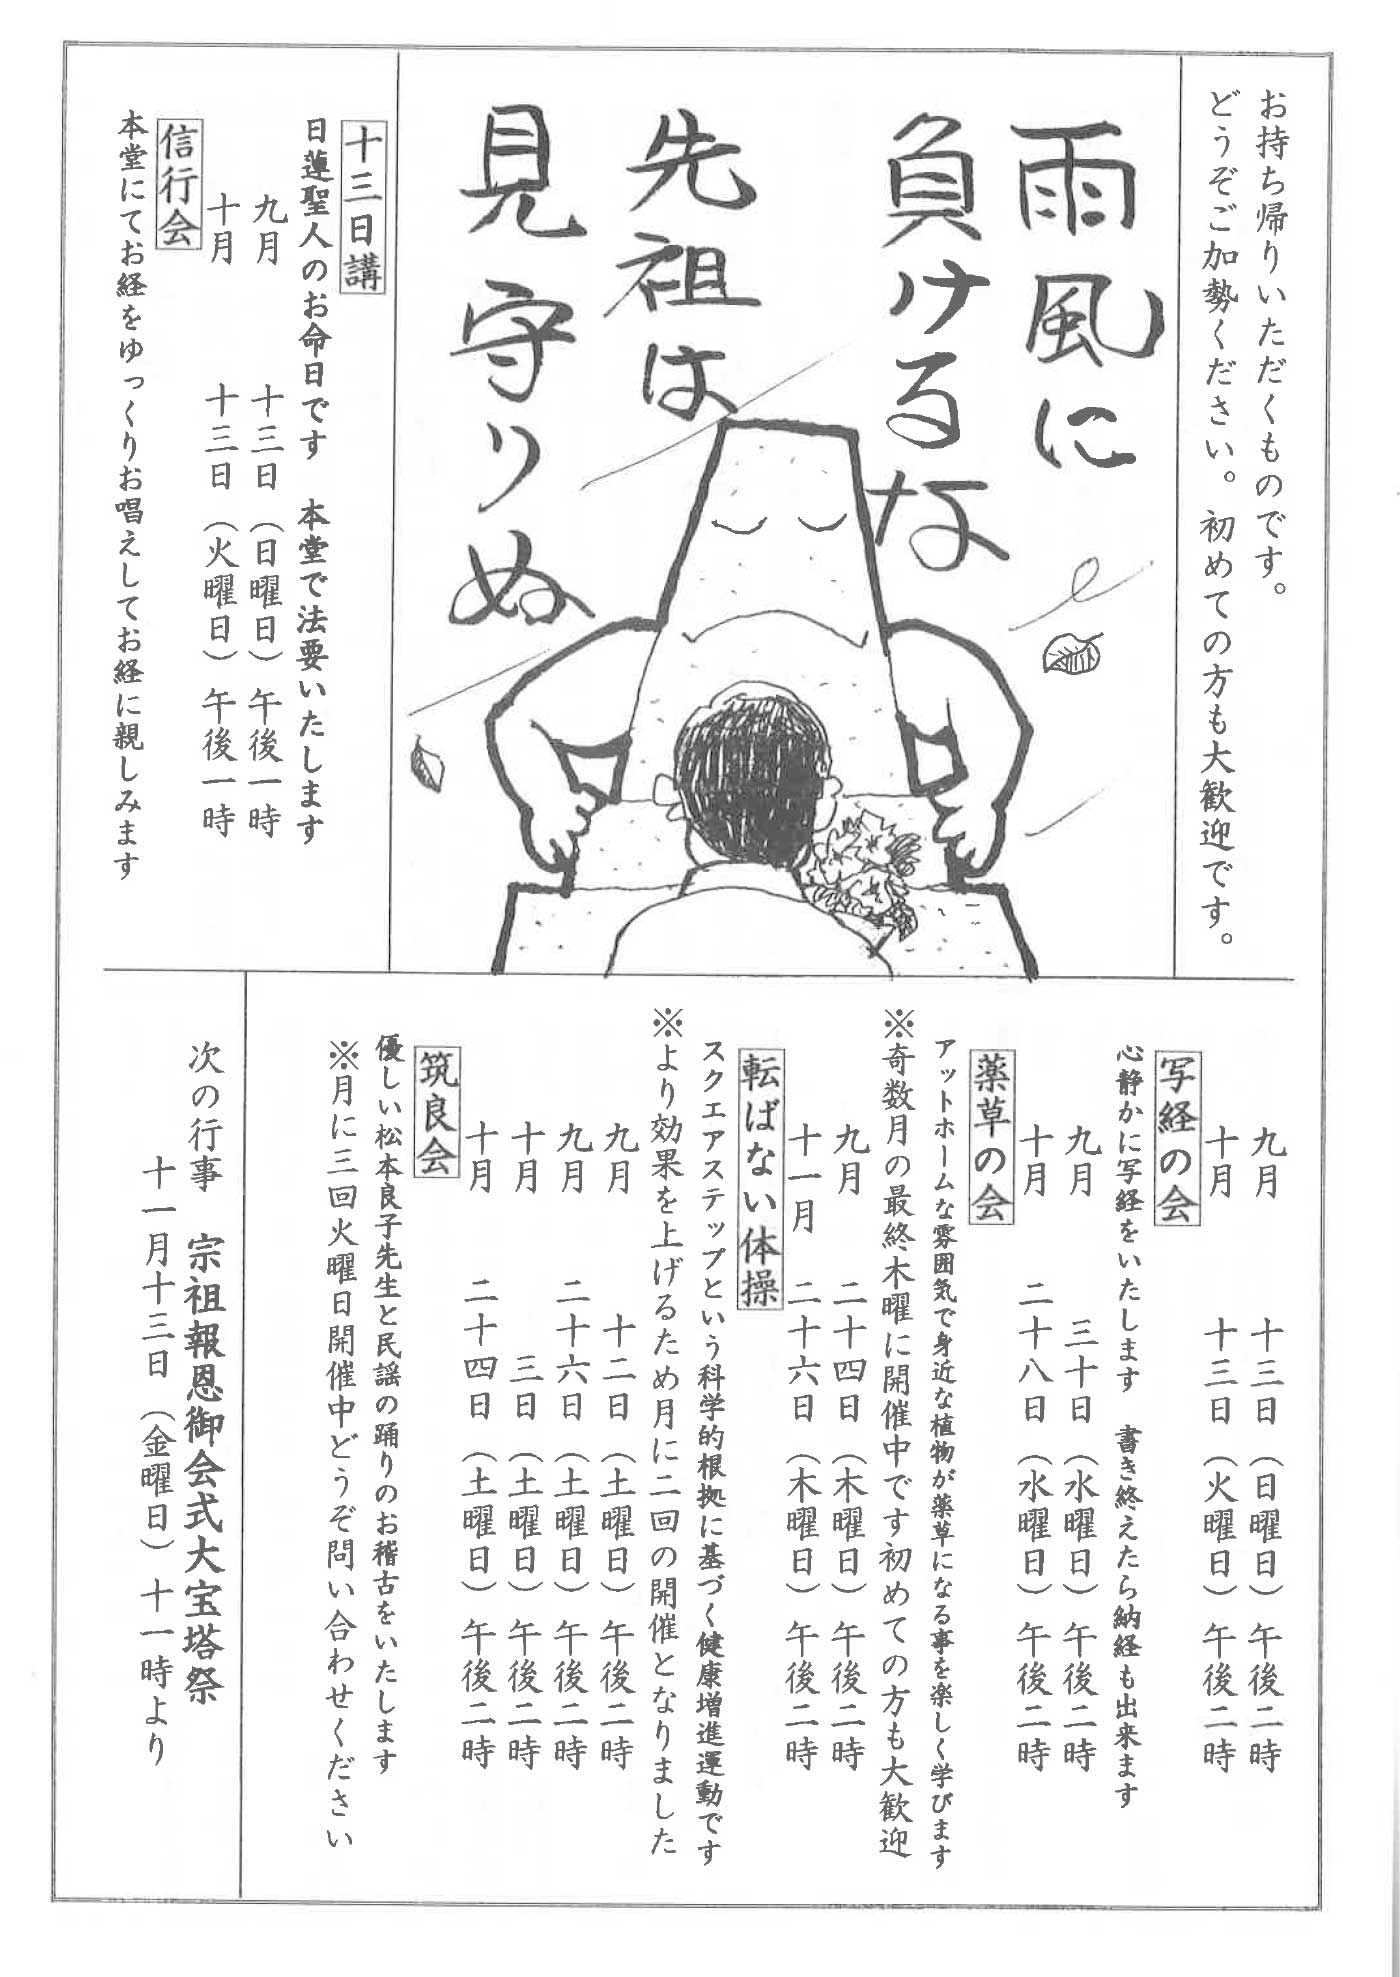 お持ち帰りいただくものです。
どうぞご加勢ください。初めての方も大歓迎です。
雨風に
負けるな
先祖は
見守りぬ
十三日講
日蓮聖人のお命日です　本堂で法要いたします
九月　十三日（日曜日）午後一時
十月　十三日（火曜日）午後一時
信行会
本堂にてお経をゆっくりお唱えしてお経に親しみます
九月　十三日（日曜日）午後二時
十月　十三日（火曜日）午後二時
写経の会
心静かに写経をいたします　書き終えたら納経も出来ます
九月　三十日（水曜日）午後二時
十月　二十八日（水曜日）午後二時
薬草の会
アットホームな雰囲気で身近な植物が薬草になる事を楽しく学びます
※奇数月の最終木曜に開催中です初めての方も大歓迎
九月　二十四日（木曜日）午後二時
十一月　二十六日（木曜日）午後二時
転ばない体操
スクエアステップという科学的根拠に基づく健康増進運動です
※より効果を上げるため月に二回の開催となりました
九月　十二日（土曜日）午後二時
九月　二十六日（土曜日）午後二時
十月　三日（土曜日）午後二時
十月　二十四日（土曜日）午後二時
筑良会
優しい松本良子先生と民謡の踊りのお稽古をいたします
※月に三回火曜日開催中どうぞ問い合わせください
次の行事　宗祖報恩御会式大宝塔祭
十一月十三日（金曜日）十一時より